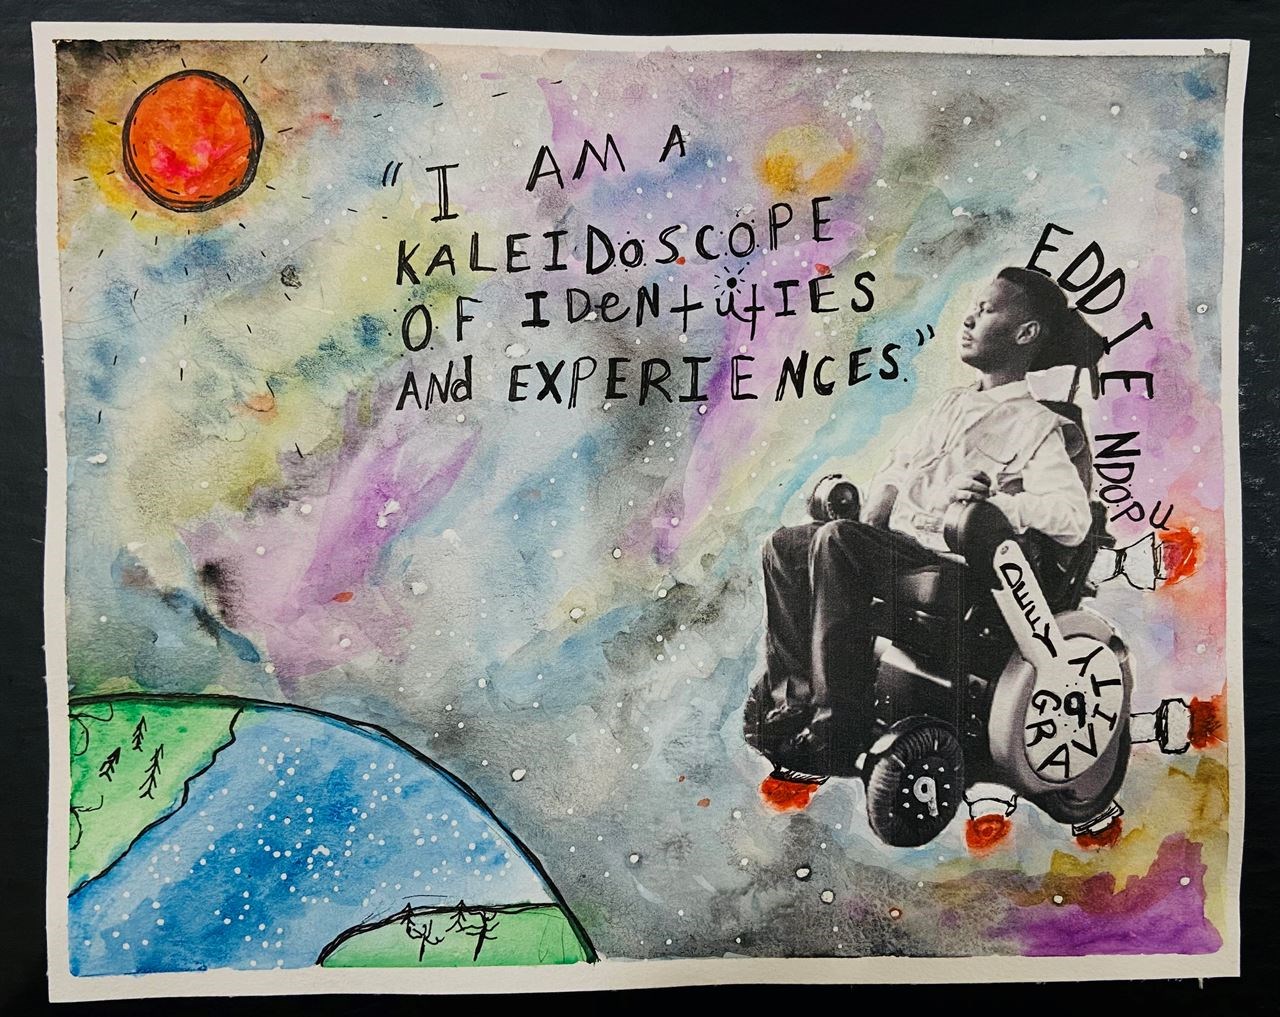 “I AM A
KALEIDOSCOPE
OF IDeNtitIES
ANd EXPERIENCES.”
EDDIE NDOPU
DEFY
GRAVITY
9